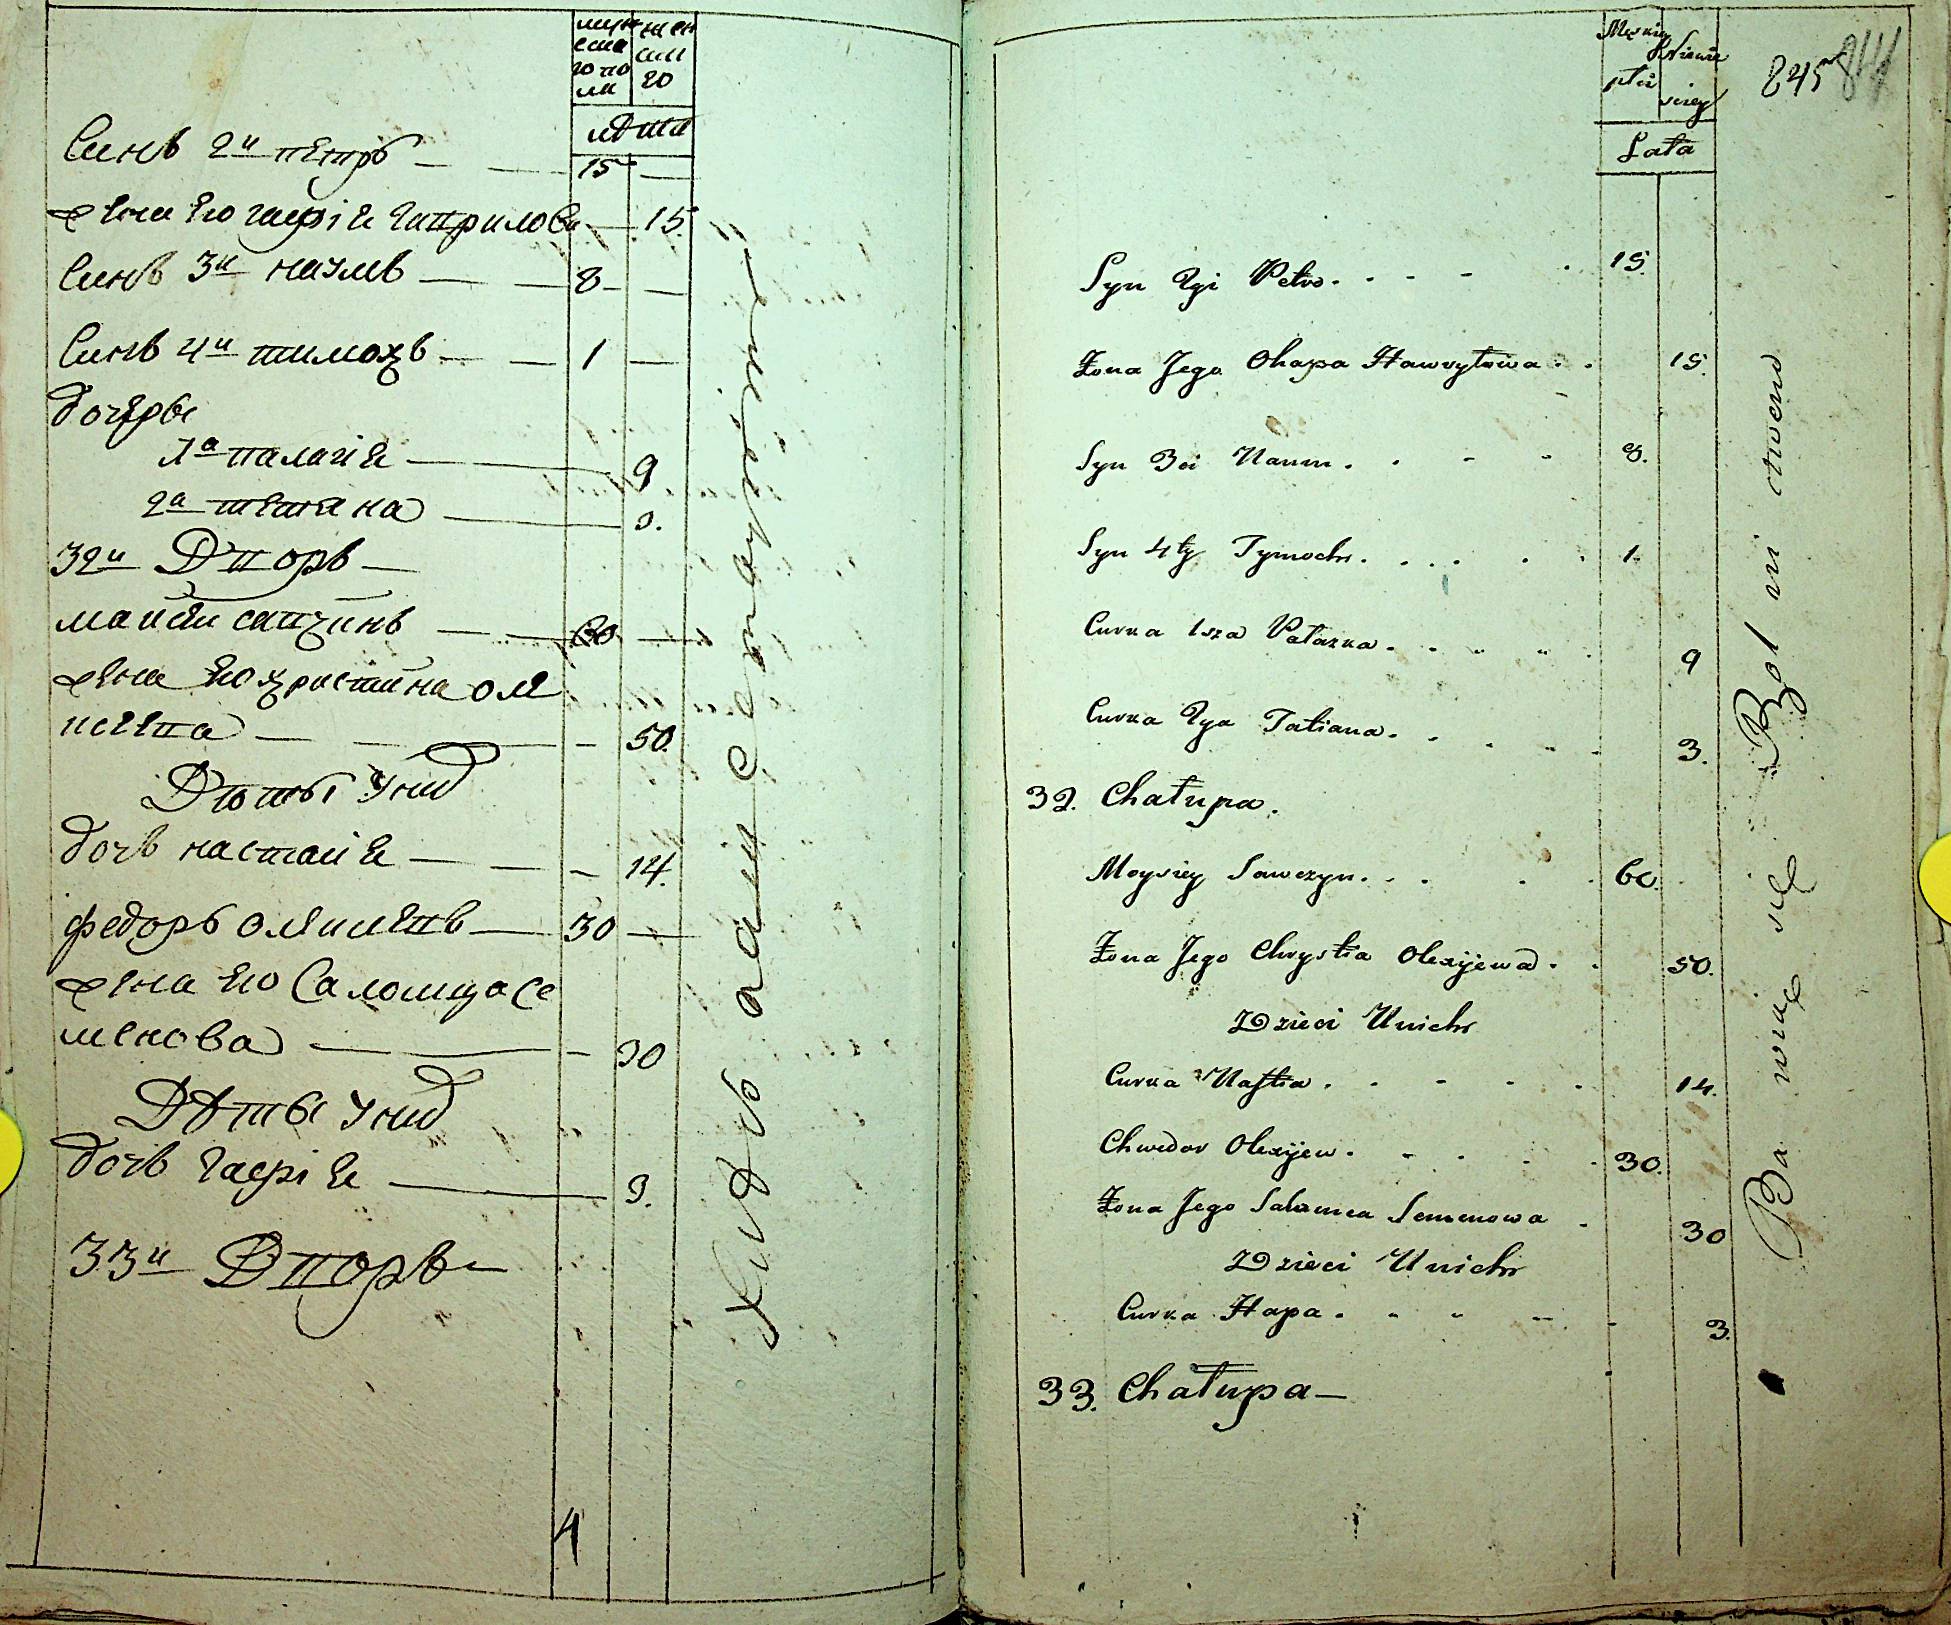 мужеска го по ла
женск го
лѣта
Синъ 2й петръ — 15 —
жена Его гапѣя гаврилова — 15.
Синъ 3й наумъ — 8 —
Синъ 4й тимохъ — 1 —
дочеры
1а палагѣя — 9
2а татяна — 3.
32й Дворъ —
мойсей савчинъ — 60 —
жена Его христина оле
ксеева — 50.
Дѣты Унид
дочъ настасія — 14.
федоръ олексіевъ — 30 —
жена Его Саломия Се
менова — 30
Дѣты Унид
дочъ гапія — 3.
33й Дворъ —
4
Męskiej płci
Niewie sciey
Lata
245
84
Syn 2gi Petro. 15.
Żona Jego Ohapa Hawryłowa. 15.
Syn 3ci Naum. 8.
Syn 4ty Tymoch. 1.
Curka 1sza Pałazka. 9
Curka 2ga Tatiana. 3.
32. Chałupa.
Moysiey Sawczyn. 60.
Żona Jego Chrystia Olexijewa. 50.
Dzieci Unich
Curka Nastia. 14.
Chwedor Olexijew. 30.
Żona Jego Salomea Semenowa. 30
Dzieci Unich
Curka Hapa. 3.
33. Chałupa —